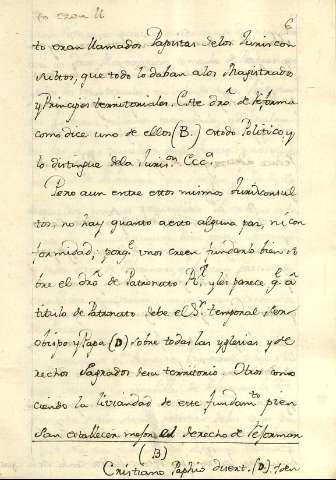 6
to eran llamados Papistas de los Juriscon
sultos, que todo lo daban a los Magistrados
y Principes territoriales. Este dro. de reforma
como dice uno de ellos (B.) es todo Politico, y
lo distingue de la Jurison. Ecca.
Pero aun entre estos mismos Jurisconsul
tos, no hay quanto a esto alguna paz, ni con
formidad; porqe. unos creen fundarlo bien so
bre el dro. de Patronato Rl. y les parece qe. a
titulo de Patronato debe el Sr. temporal, ser
obispo y Papa (D) sobre todas las yglesias y de
rechos Sagrados de su territorio. Otros cono
ciendo la liviandad de este fundamto. pien
san establecer mejor el derecho de reformar
(B)
Cristiano Paphio disert. (D).